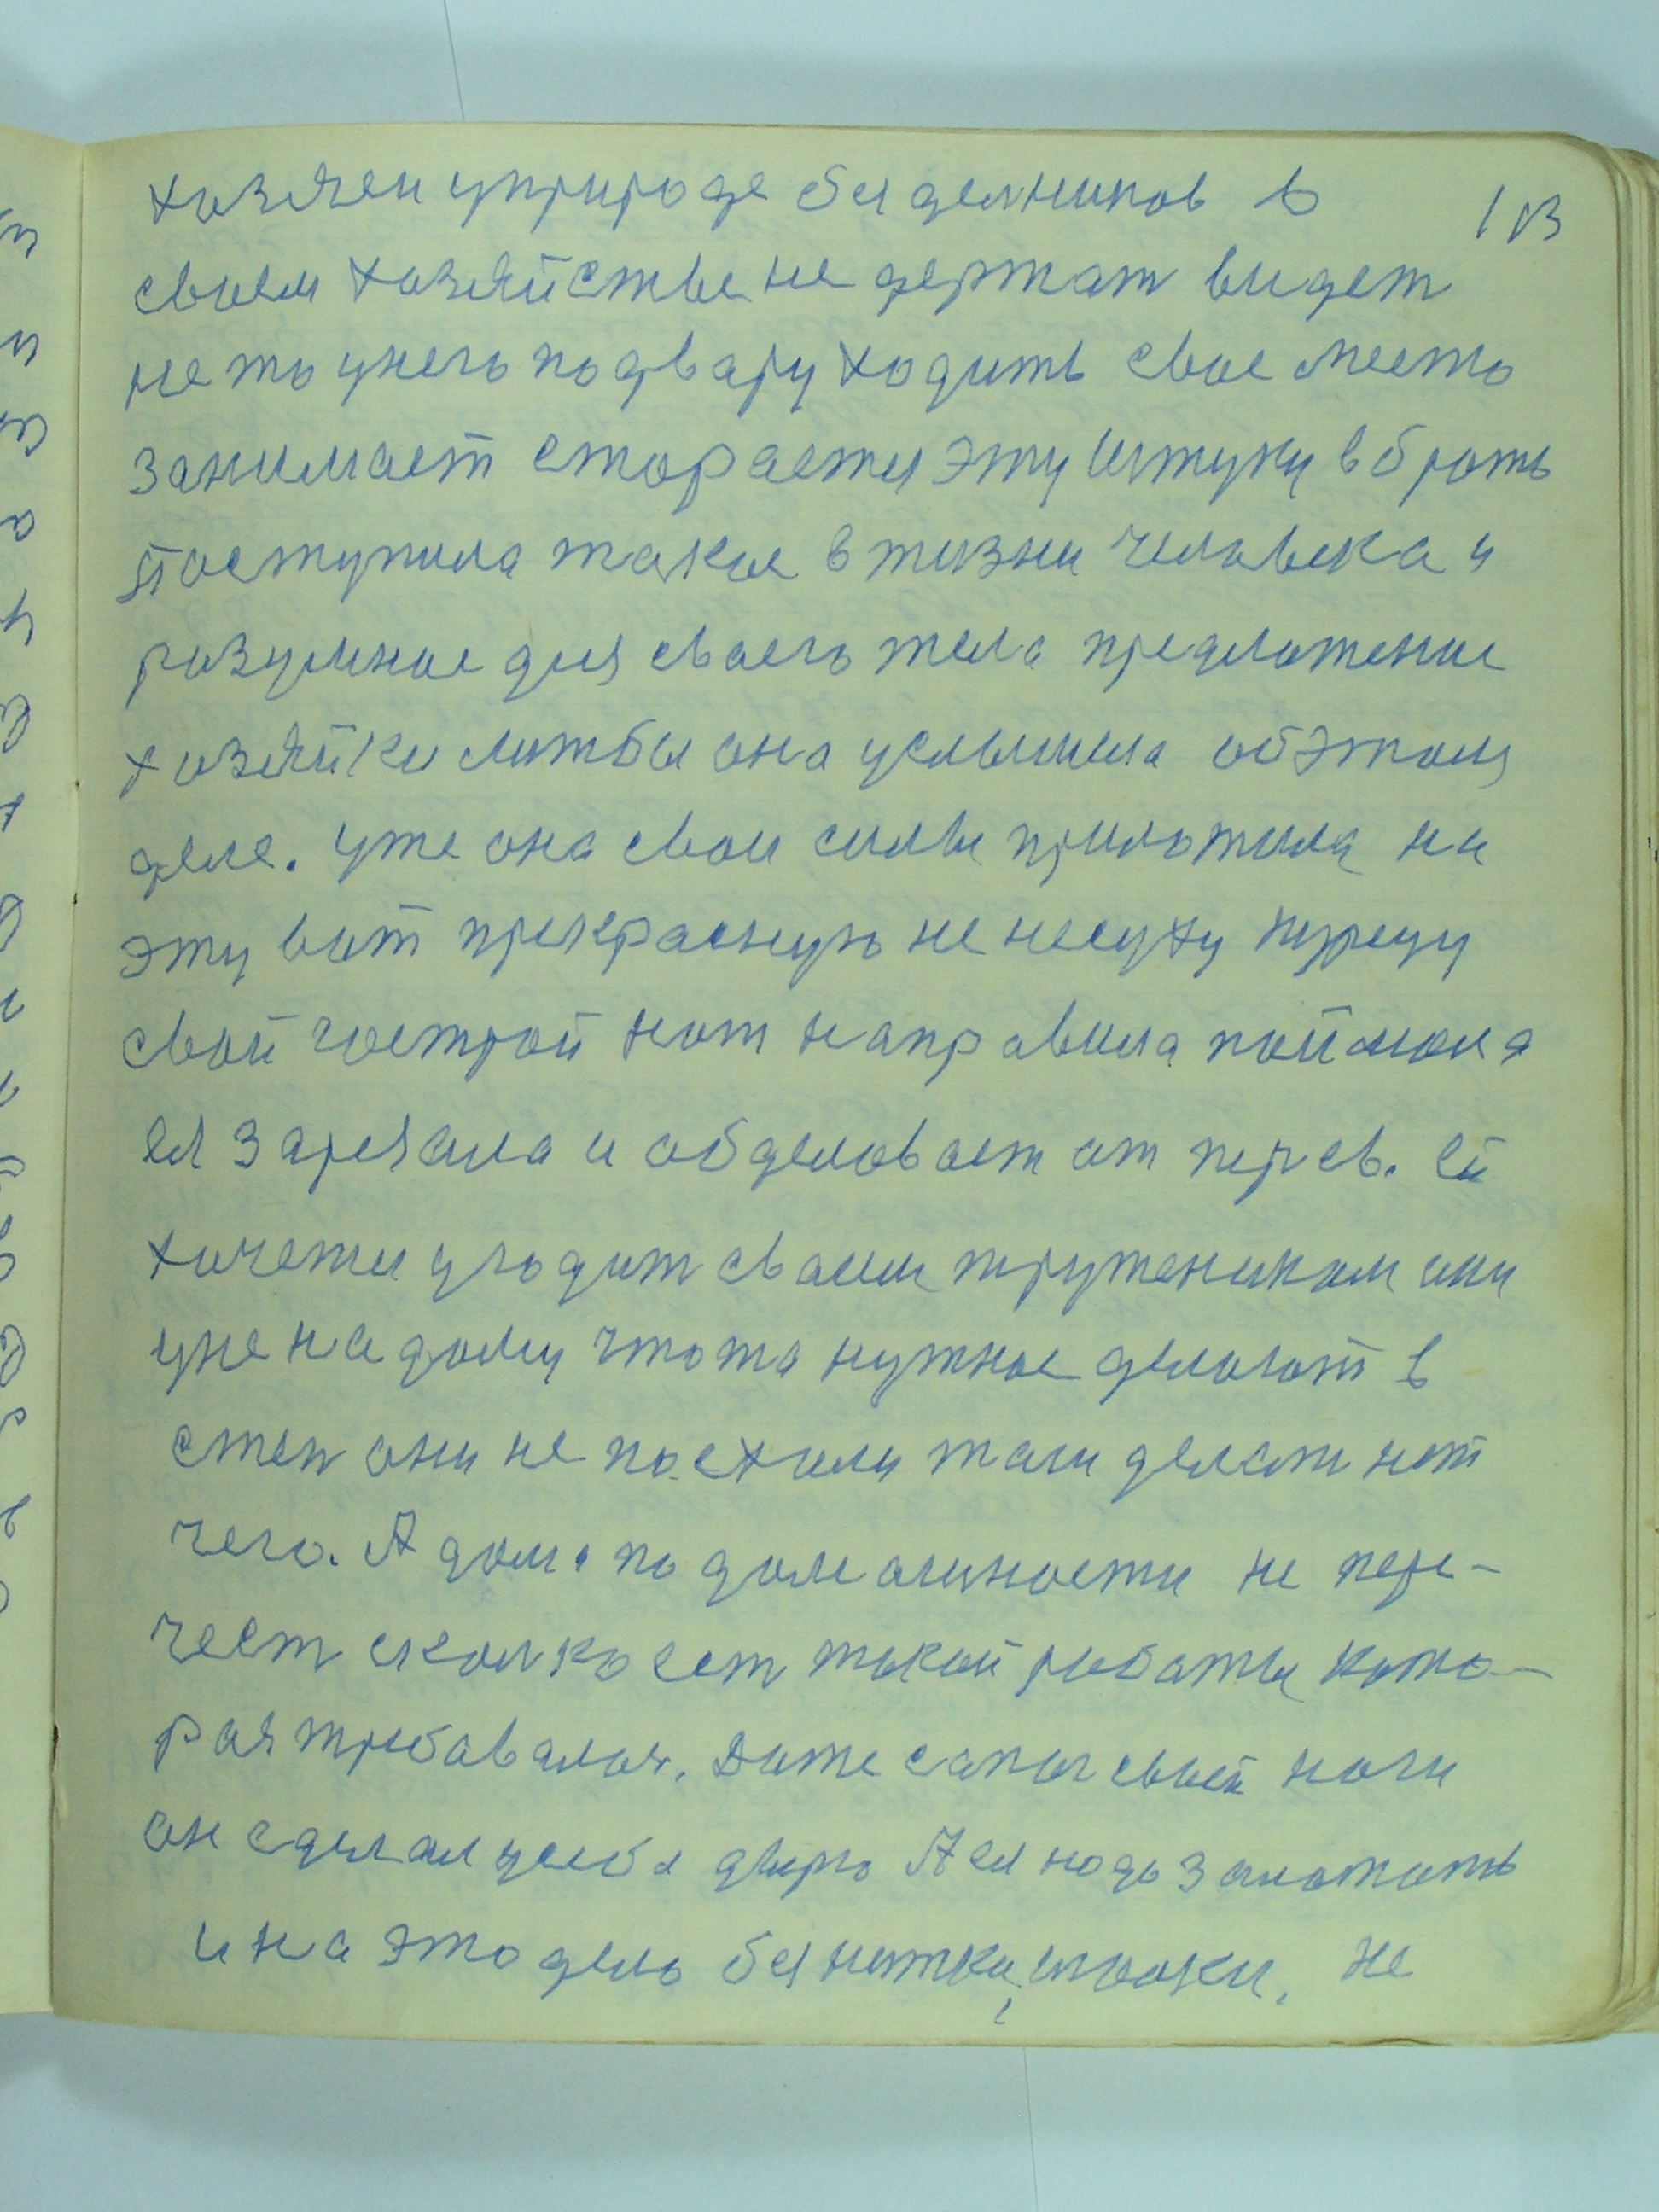 хозяеи уприроде безделников в
113
своем хозяйстве не держат видет
не то унего подвару ходить свое место
занимает старается эту штуку вброть
Поступила такое в жизни человека и
розумное для своего тела предложение
хозяйки литбы она услышила обэтом
деле. Уже она свои силы приложила на
эту вот прекрасную не несуху курецу
свой гострой нож направила поймала
ея зарезала и обделовает от перев. Ей
хочетси угодит своим труженикам они
уне на дому что то нужное делают в
степ они не поехали таги делат нет
чего. А дома по домашности не пере-
чест сколко ест такой роботы кото-
рая требавалоя. Даже сапог своей ноги
он сделал усебя дыро А ея нодо золотать
и на это дело без нитки, иголки, не